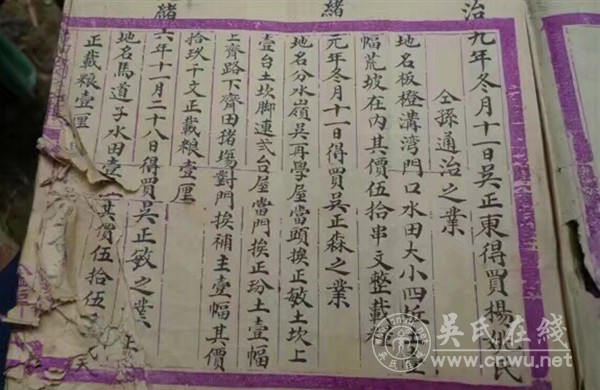 治九年冬月十一日吳正東得買楊氏
仝孫通治之業
地名板橙溝湾門口水田大小四坵
幅荒坡在内其價伍拾串文整載
緒元年冬月十一日得買吳正森之業
地名分水嶺吳再學屋當頭挨正敏土坎上
壹台土坎脚連弍台屋當門挨正玢土壹幅
上齊路下齊田猪塲對門挨補主壹幅其價
拾玖千文正載粮壹厘
緒六年十一月二十八日得買吳正敏之業
地名馬道子水田壹其價伍拾伍
正載粮壹厘
吳氏在線
www.cnwu.net